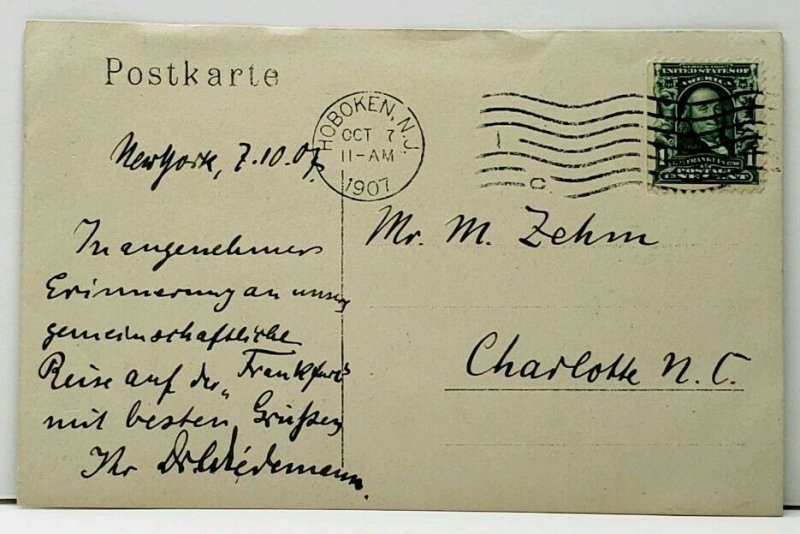 Postkarte
HOBOKEN, N.J.
OCT 7
11-AM
1907
1
C
UNITED STATES OF
AMERICA
FRANKLIN
POSTAGE
ONE CENT
New York, 7.10.07.
In angenehmer
Erinnerung an unsere
gemeinschaftliche
Reise auf der „Frankfurt"
mit besten Grüßen
Ihr Dr Wiedemann.
Mr. M. Zehm
Charlotte N.C.